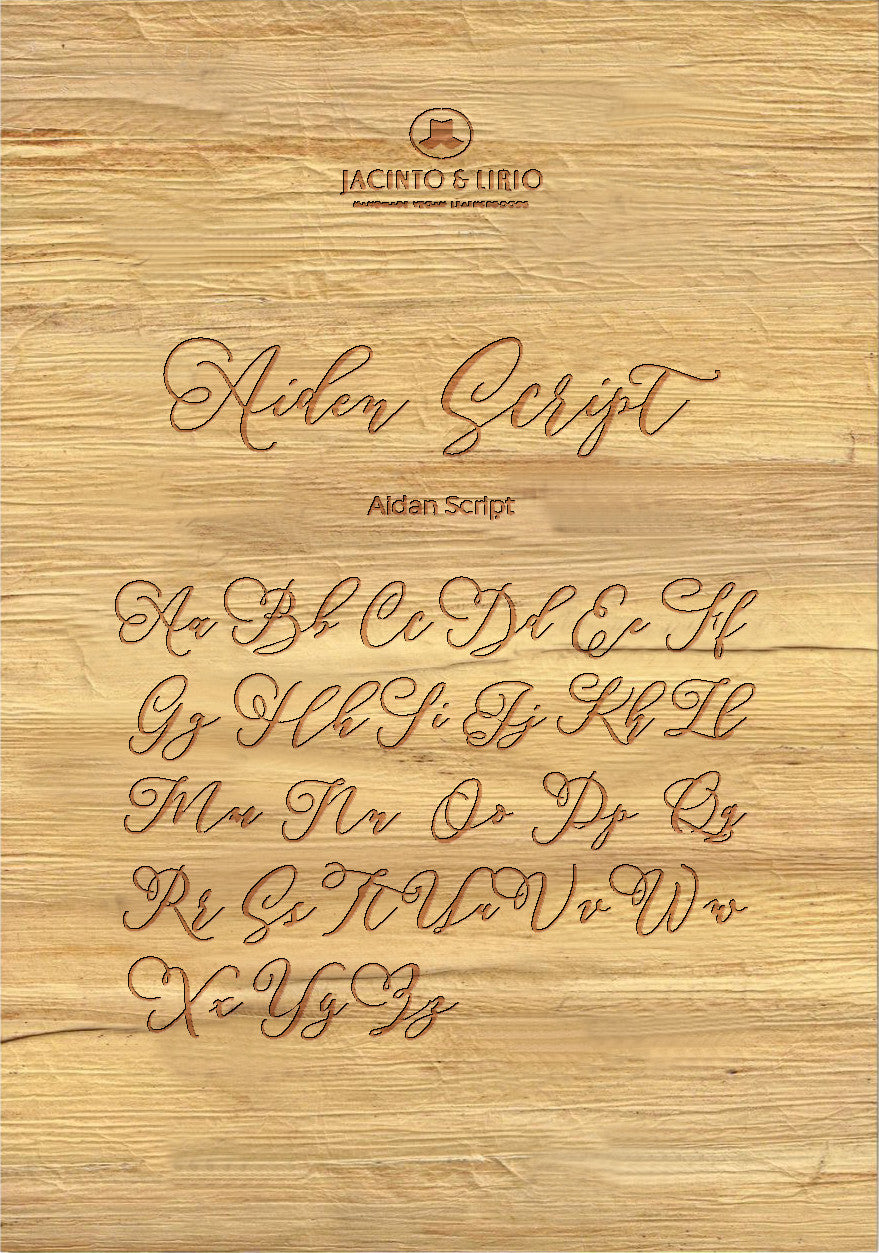 JACINTO & LIRIO
HANDMADE VEGAN LEATHERGOODS
Aiden Script
Aidan Script
Aa Bb Cc Dd Ee Ff
Gg Hh Ii Jj Kk Ll
Mm Nn Oo Pp Qq
Rr Ss Tt Uu Vv Ww
Xx Yy Zz